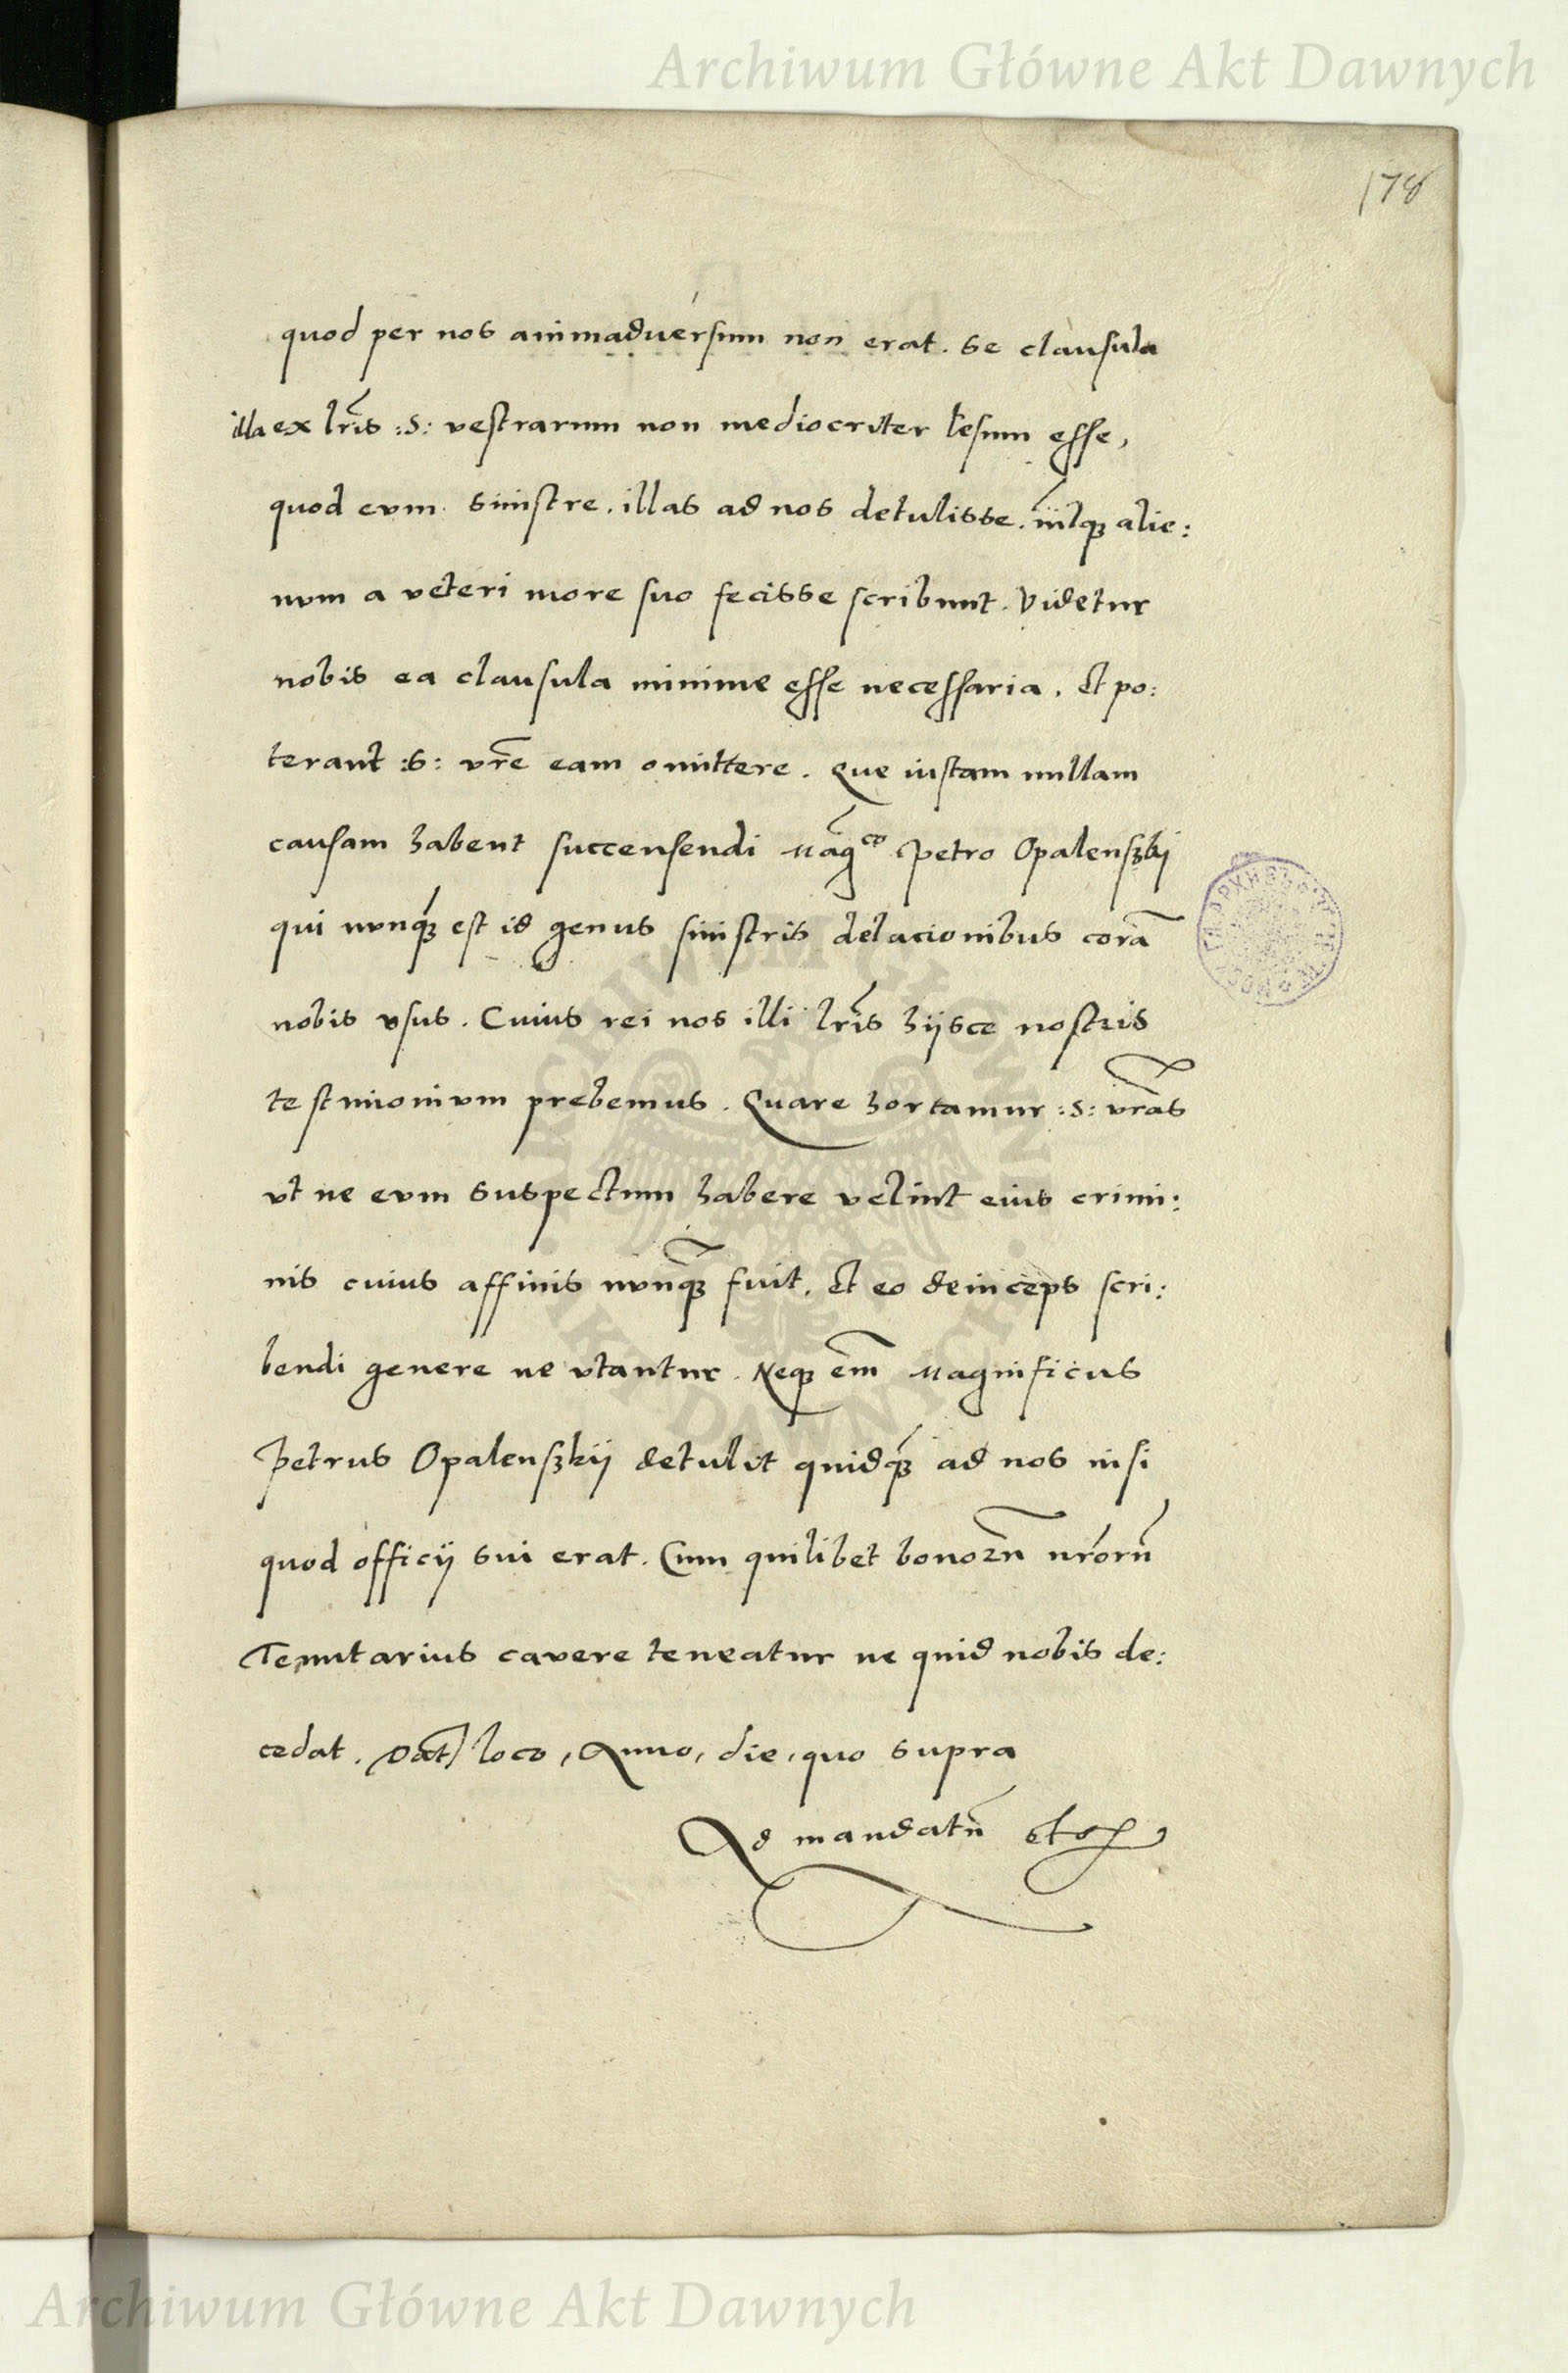 Archiwum Główne Akt Dawnych
178
quod per nos animaduersum non erat. Se clausula
illa ex lr̃is :S: vestrarum non mediocriter lesum esse,
quod eum sinistre. illas ad nos detulisse. nilq3 alie:
num a veteri more suo fecisse scribunt. Videtur
nobis ea clausula minime esse necessaria. Et po:
terant :S: vr̃e eam omittere. Que iustam nullam
causam habent succensendi Mag̃co Petro Opalenskij
qui nunq̃3 est id genus sinistris delacionibus corã
nobis vsus. Cuius rei nos illi lr̃is hijsce nostris
testimonium prebemus. Quare hortamur :S: vr̃as
vt ne eum suspectum habere velint eius crimi:
nis cuius affinis nunq̃3 fuit. Et eo deinceps scri:
bendi genere ne vtantur. Neq3 em̃ Magnificus
Petrus Opalenskij detulit quidq̃3 ad nos nisi
quod officij sui erat. Cum quilibet bonorũ nr̃orũ
Tenutarius cavere teneatur ne quid nobis de:
cedat. Dat̃ loco, Anno, die, quo supra
Ad mandatũ etc
ARCHIWUM GŁÓWNE AKT DAWNYCH
Archiwum Główne Akt Dawnych